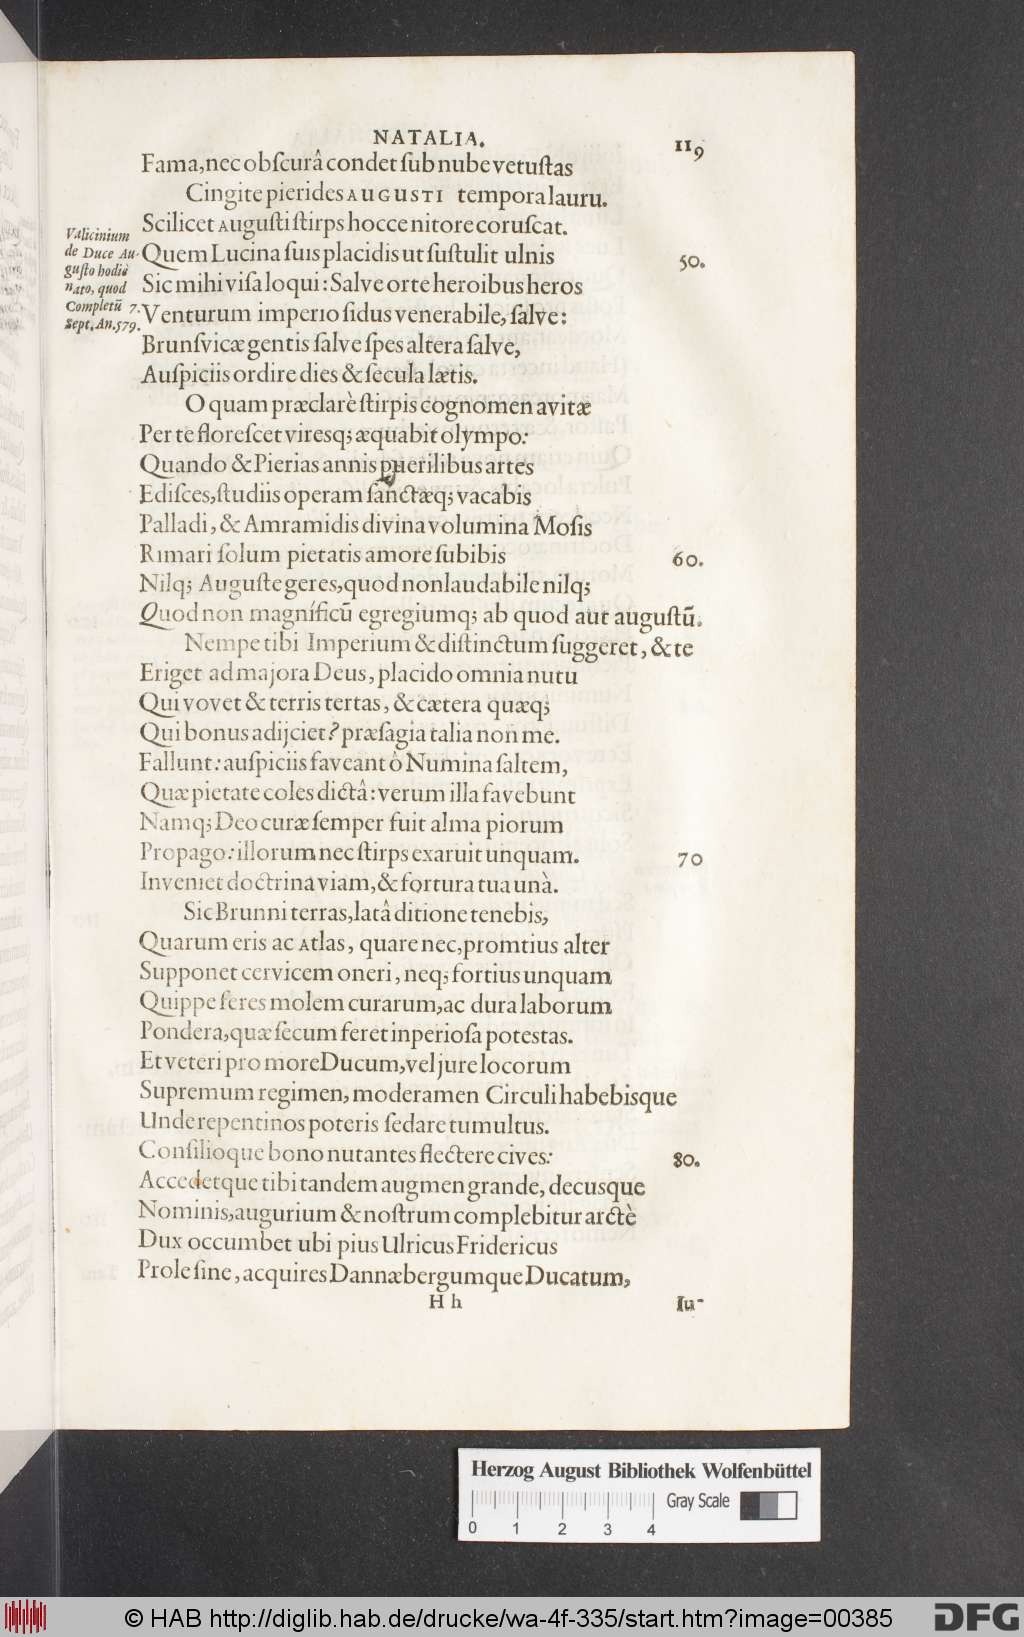 NATALIA. 119
Fama, nec obſcurâ condet ſub nube vetuſtas
Cingite pierides AUGUSTI tempora lauru.
Scilicet Auguſti ſtirps hocce nitore coruſcat.
Vaticinium
de Duce Au-
guſto hodiè
nato, quod
Completũ 7.
Sept. An. 579.
Quem Lucina ſuis placidis ut ſuſtulit ulnis 50.
Sic mihi viſa loqui: Salve orte heroibus heros
Venturum imperio ſidus venerabile, ſalve:
Brunſvicæ gentis ſalve ſpes altera ſalve,
Auſpiciis ordire dies & ſecula lætis.
O quam præclarè ſtirpis cognomen avitæ
Per te floreſcet viresq; æquabit olympo:
Quando & Pierias annis puerilibus artes
Ediſces, ſtudiis operam ſanctæq; vacabis
Palladi, & Amramidis divina volumina Moſis
Rimari ſolum pietatis amore ſubibis 60.
Nilq; Auguſte geres, quod non laudabile nilq;
Quod non magnificũ egregiumq; ab quod aut auguſtũ.
Nempe tibi Imperium & diſtinctum ſuggeret, & te
Eriget ad majora Deus, placido omnia nutu
Qui vovet & terris tertas, & cætera quæq;
Qui bonus adijciet? præſagia talia non me.
Fallunt: auſpiciis faveant ô Numina ſaltem,
Quæ pietate coles dictâ: verum illa favebunt
Namq; Deo curæ ſemper fuit alma piorum
Propago: illorum nec ſtirps exaruit unquam. 70
Inveniet doctrina viam, & fortura tua unà.
Sic Brunni terras, latâ ditione tenebis,
Quarum eris ac Atlas, quare nec, promtius alter
Supponet cervicem oneri, neq; fortius unquam
Quippe feres molem curarum, ac dura laborum
Pondera, quæ ſecum feret inperioſa potestas.
Et veteri pro more Ducum, vel jure locorum
Supremum regimen, moderamen Circuli habebisque
Unde repentinos poteris ſedare tumultus.
Conſilioque bono nutantes flectere cives: 80.
Accedetque tibi tandem augmen grande, decusque
Nominis, augurium & noſtrum complebitur arctè
Dux occumbet ubi pius Ulricus Fridericus
Prole ſine, acquires Dannæbergumque Ducatum,
H h Iu-
Herzog August Bibliothek Wolfenbüttel
Gray Scale
0 1 2 3 4
© HAB http://diglib.hab.de/drucke/wa-4f-335/start.htm?image=00385
DFG